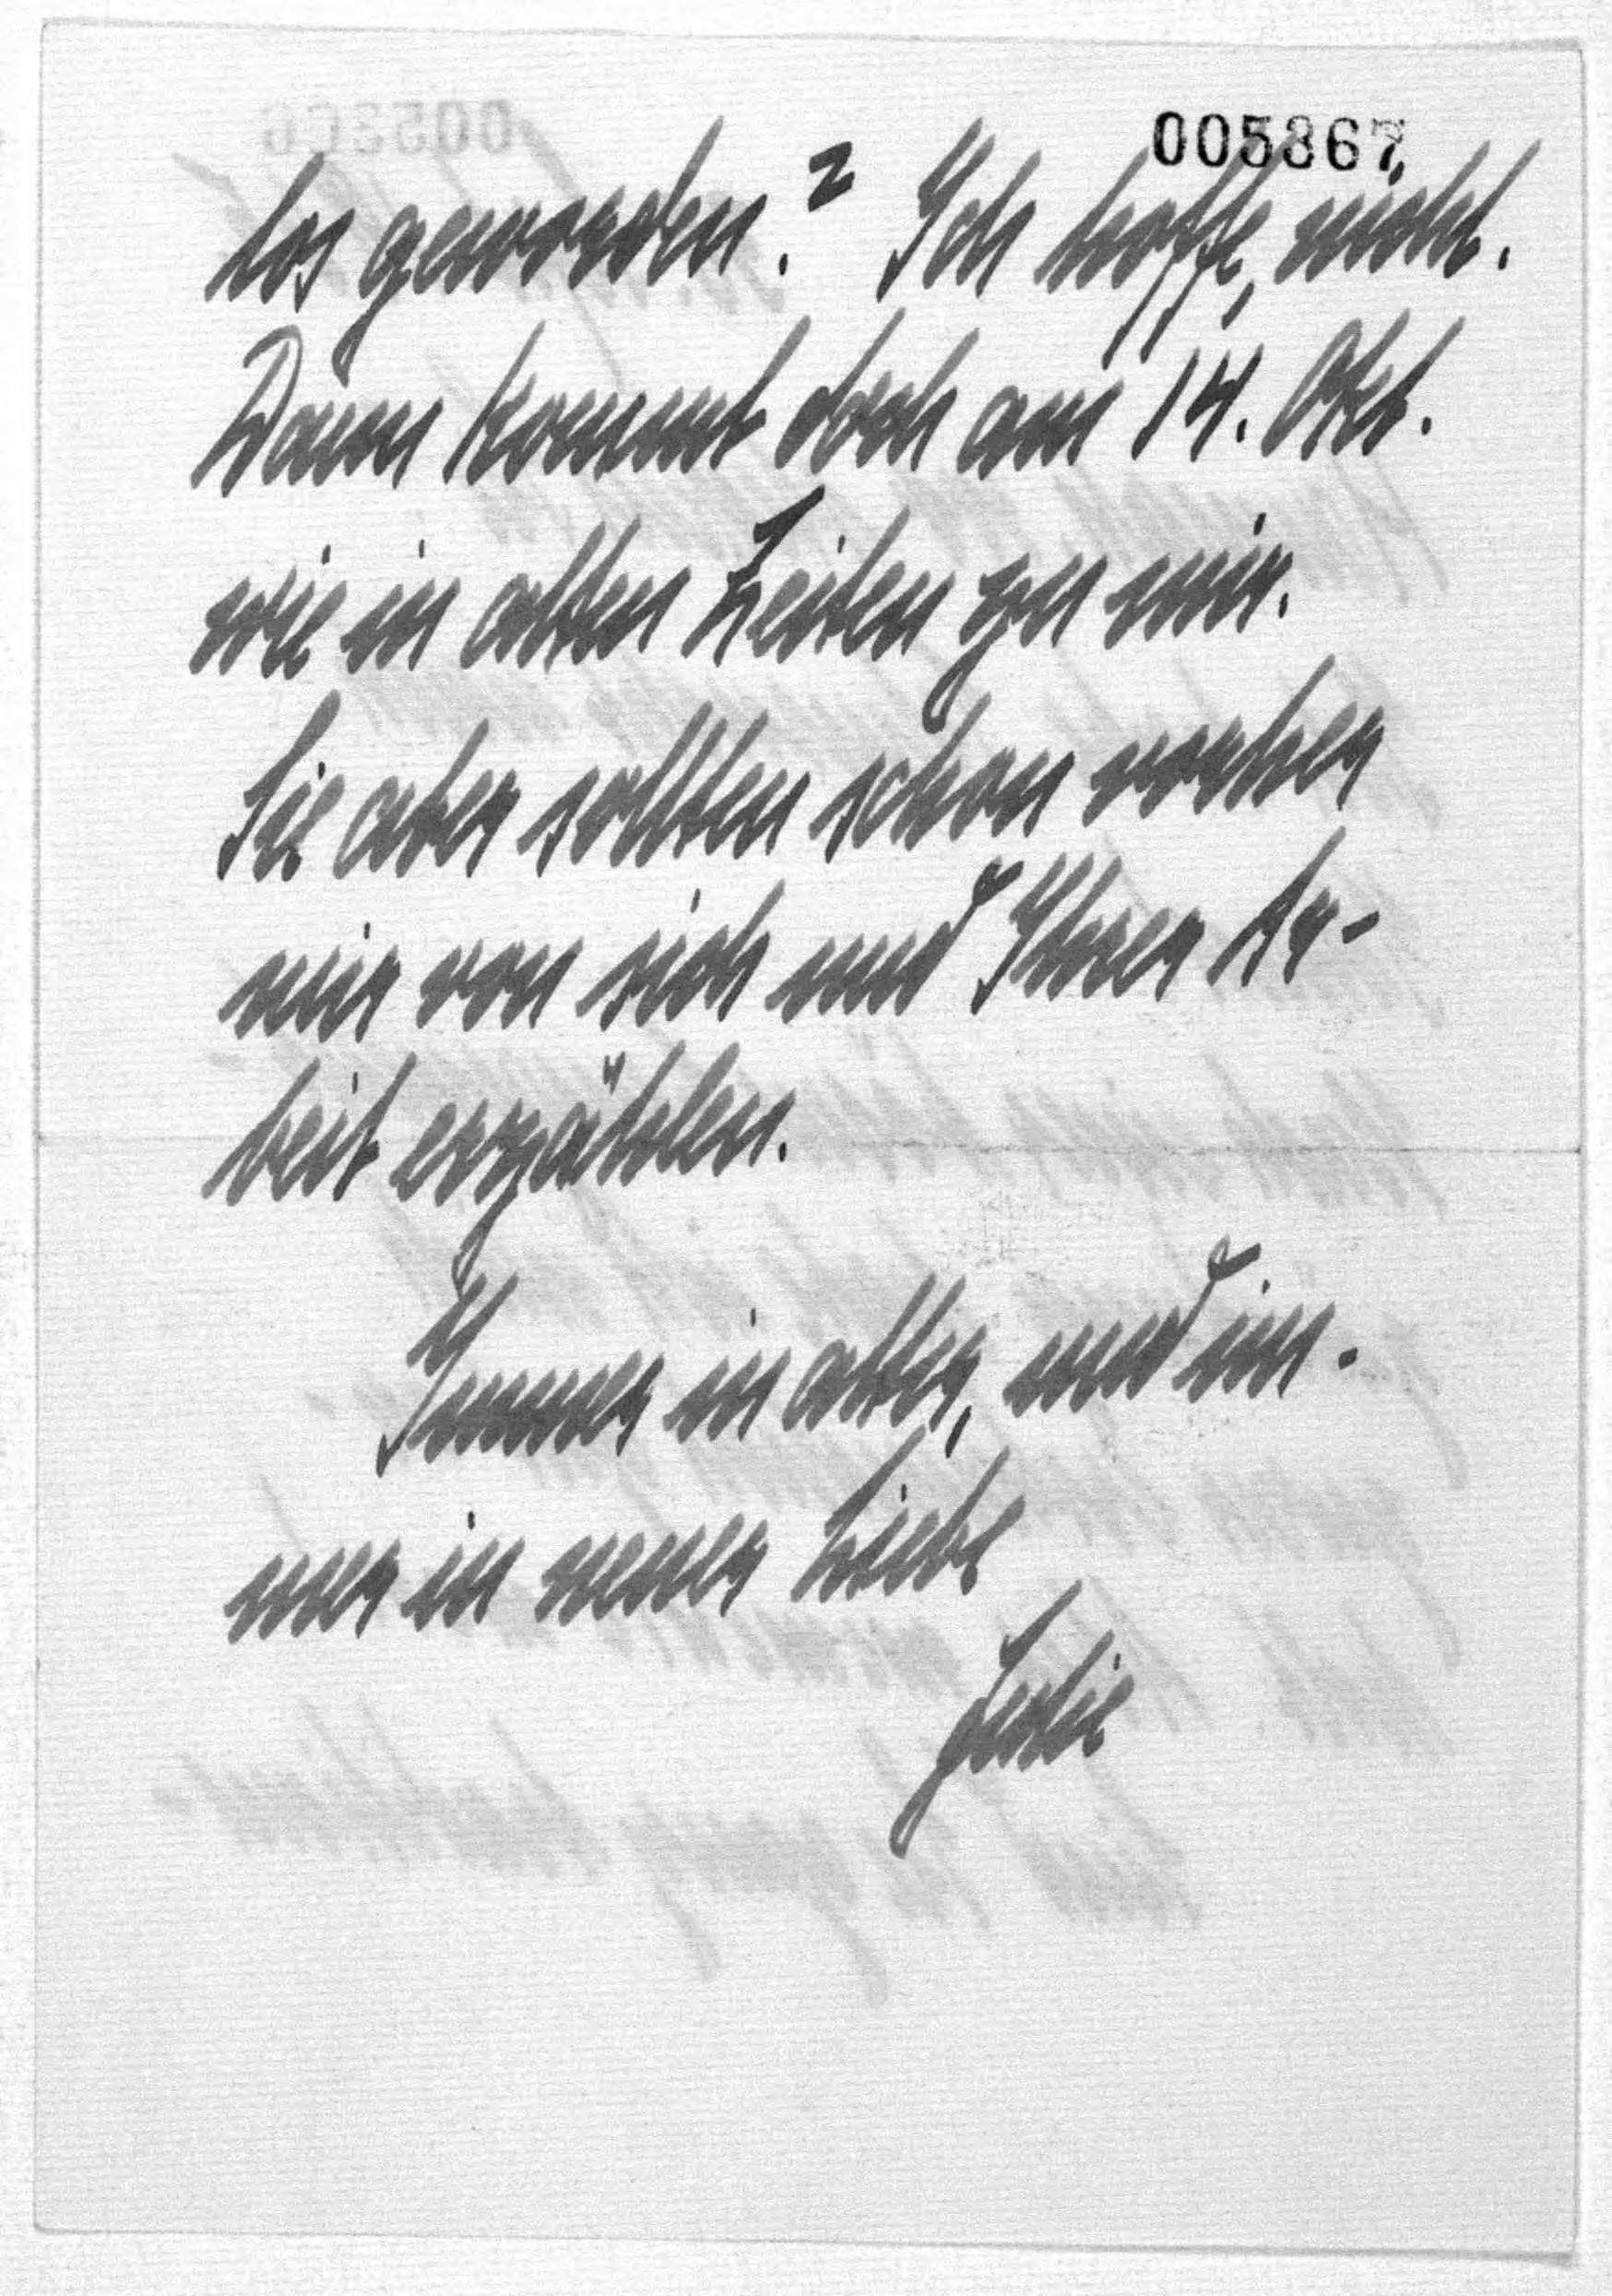 005867
los geworden? Ich hoffe, nicht.
Dann kommt doch am 14. Okt.
wie in alten Zeiten zu mir.
Sie aber sollten schon vorher
mir von sich und Ihrer Ar-
beit erzählen.
Immer in alter, und im-
mer in neuer Liebe